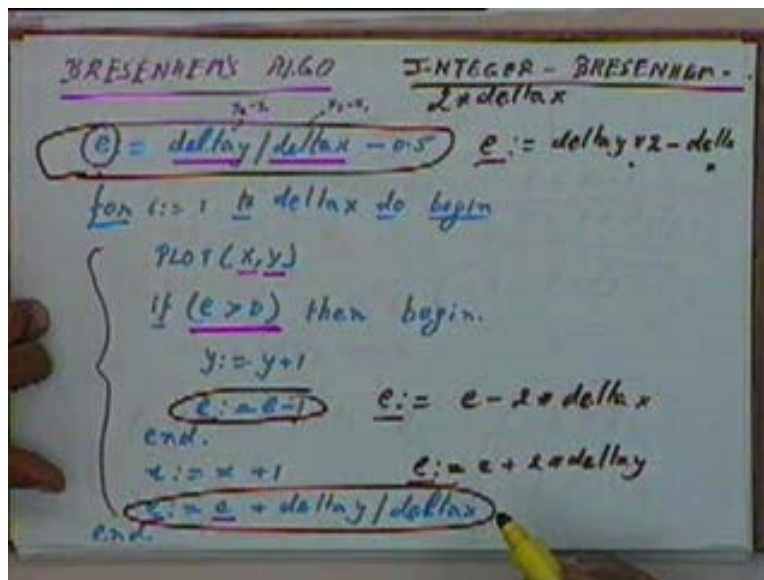 BRESENHEM'S ALGO
INTEGER - BRESENHEM -
2*deltax
e = deltay/deltax - 0.5
e := deltay*2 - delta
for i:= 1 to deltax do begin
PLOT(x,y)
if (e > 0) then begin.
y:= y+1
e:= e-1
e:= e - 2*deltax
end.
x:= x +1
e:= e + 2*deltay
e:= e + deltay/deltax
end.